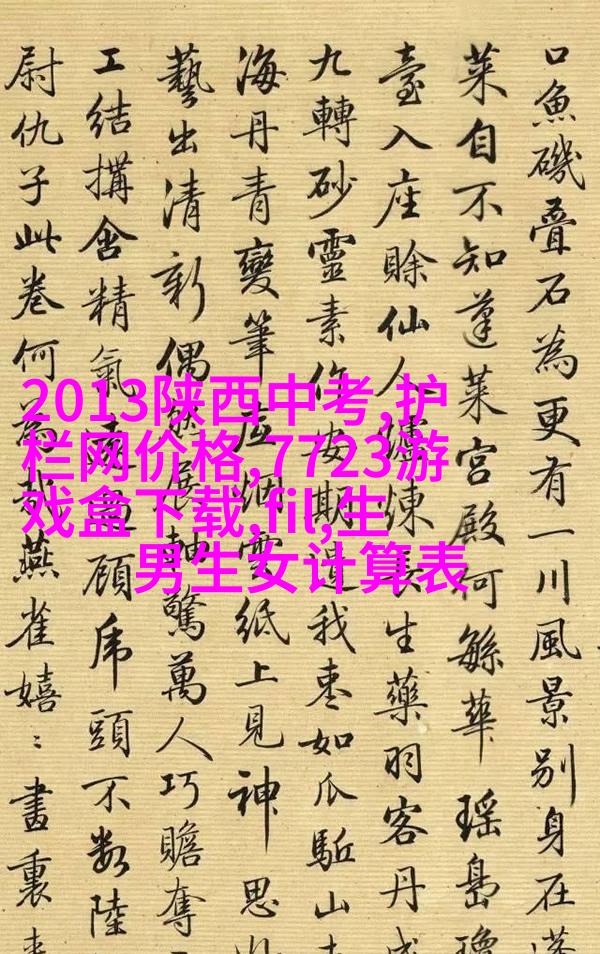 口魚磯疊石為更有一川風景别身在蓬
萊自不知蓬萊宮殿何緐華瑤島瓊
臺入座賒仙人爐煉長生藥羽客丹成
九轉砂靈素作安期遺我枣如瓜駈山
海丹青變筆底烟雲紙上見神思
藝出清新偶然展軸驚萬人巧贍奪
工結搆含精氣顧虎頭不数陸
尉仇子此卷何為燕雀嬉〻畫裏
2013陕西中考,护
栏网价格,7723游
戏盒下载,fil,生
男生女计算表